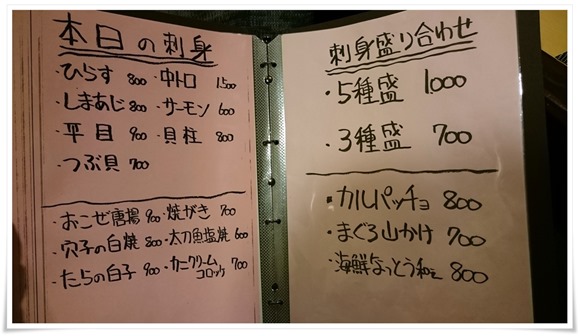 本日の刺身
・ひらす 800 ・中トロ 1500
・しまあじ 800 ・サーモン 600
・平目 900 ・貝柱 800
・つぶ貝 700
・おこぜ唐揚 900 ・焼がき 700
・穴子の白焼 800 ・太刀魚塩焼 600
・たらの白子 900 ・カニクリームコロッケ 700
刺身盛り合わせ
・5種盛 1000
・3種盛 700
・カルパッチョ 800
・まぐろ山かけ 700
・海鮮なっとう和え 800